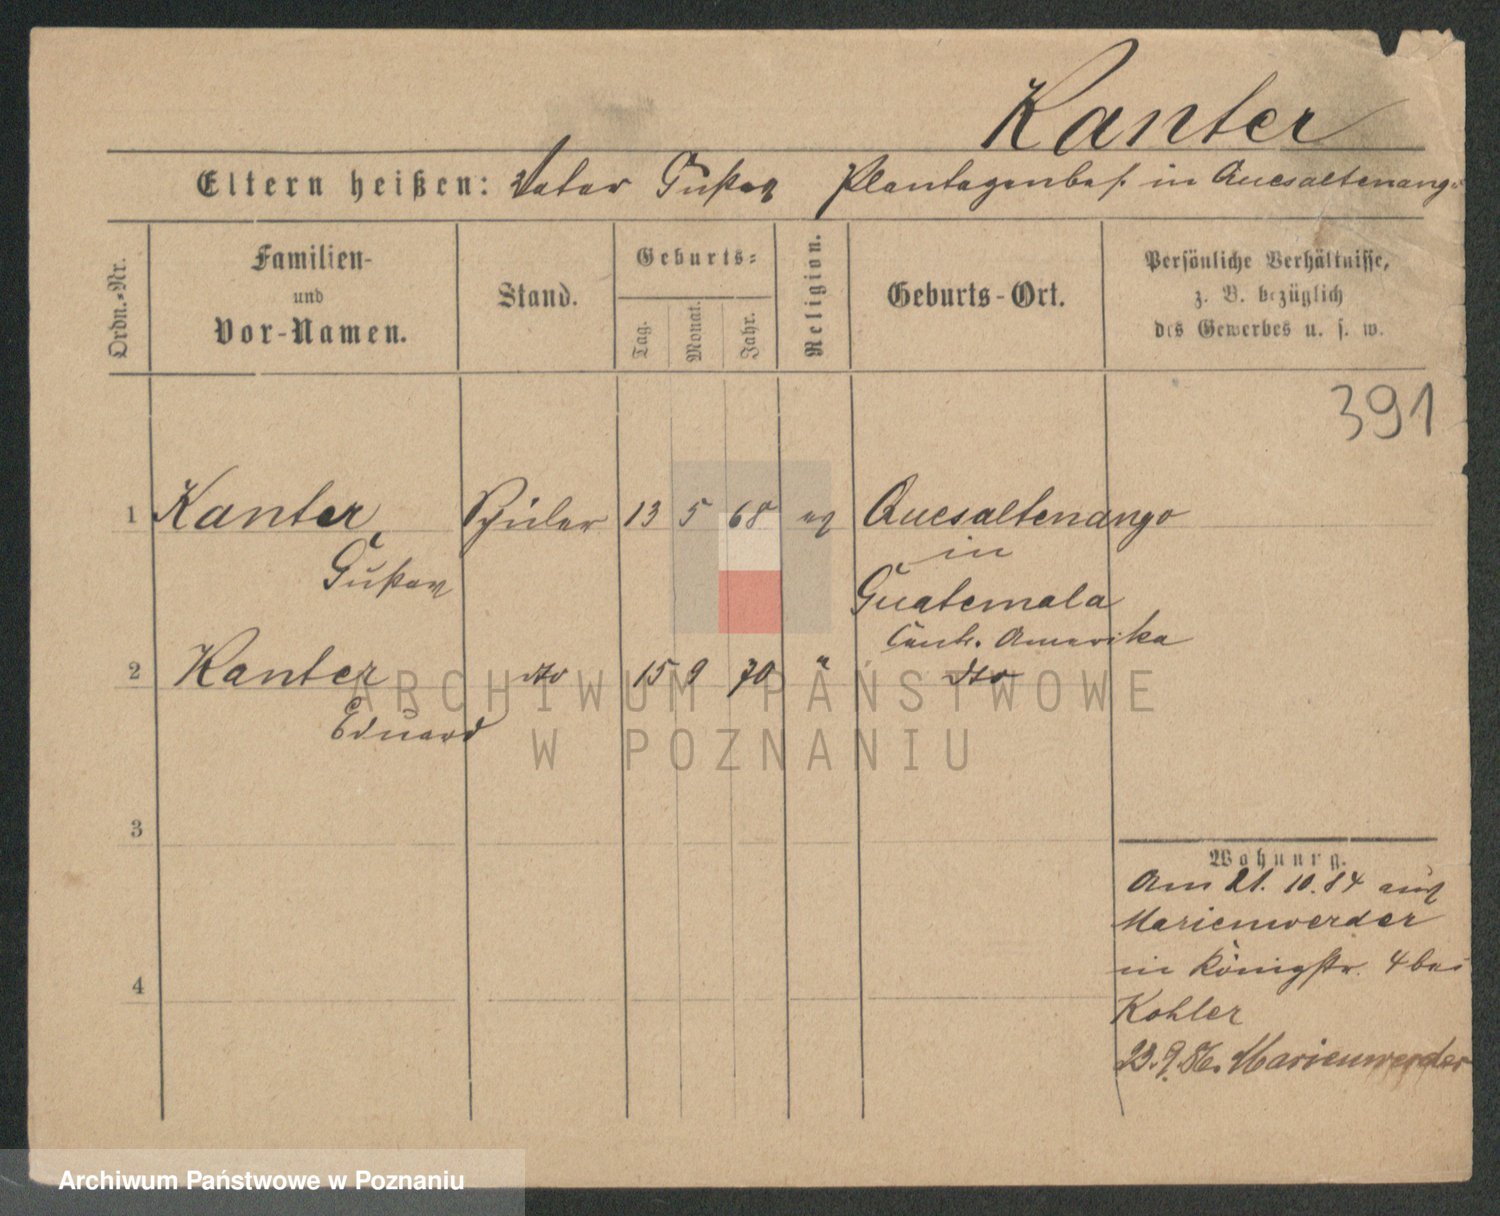 Kanter
Eltern heißen: Vater Gustav Plantagenbes. in Quesaltenango
Ordn.-Nr.
Familien-
und
Vor-Namen.
Stand.
Geburts-
Tag.
Monat.
Jahr.
Religion.
Geburts-Ort.
Persönliche Verhältnisse,
z. B. bezüglich
des Gewerbes u. s. w.
391
1 Kanter Schüler 13 5 68 ev Quesaltenango
in
Gustav Guatemala
Centr. Amerika
2 Kanter dto 15 9 70 " dto
Eduard
ARCHIWUM PAŃSTWOWE
W POZNANIU
3
Wohnung.
Am 21. 10. 84 aus
Marienwerder
in Königstr. 4 bei
4
Kohler
23. 9. 86. Marienwerder
Archiwum Państwowe w Poznaniu